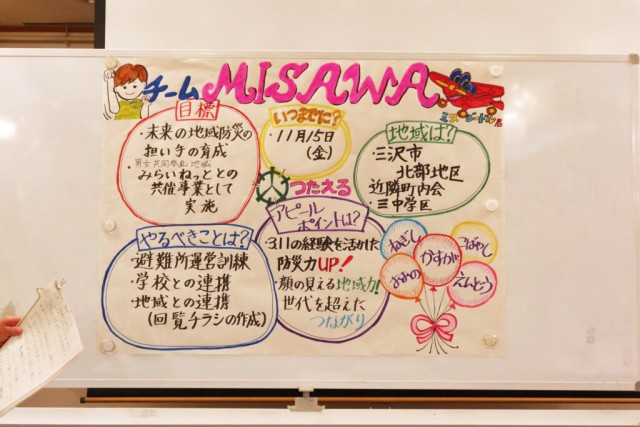 チーム MISAWA
目標
・未来の地域防災の
担い手の育成
男女共同参画 地域
みらいねっととの
共催事業として
実施
いつまでに?
・11月15日
(金)
地域は?
・三沢市
北部地区
近隣町内会
・三中学区
つたえる
やるべきことは?
・避難所運営訓練
・学校との連携
・地域との連携
(回覧チラシの作成)
アピール
ポイントは?
・3.11の経験を活かした
防災力UP!
・顔の見える地域力!
世代を超えた
つながり
ねぎし
かすが
こばやし
おおの
えんどう